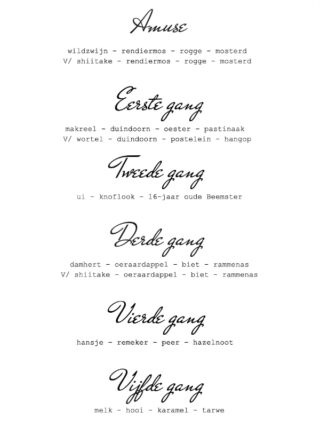 Amuse
wildzwijn - rendiermos - rogge - mosterd
V/ shiitake - rendiermos - rogge - mosterd
Eerste gang
makreel - duindoorn - oester - pastinaak
V/ wortel - duindoorn - postelein - hangop
Tweede gang
ui - knoflook - 16-jaar oude Beemster
Derde gang
damhert - oeraardappel - biet - rammenas
V/ shiitake - oeraardappel - biet - rammenas
Vierde gang
hansje - remeker - peer - hazelnoot
Vijfde gang
melk - hooi - karamel - tarwe